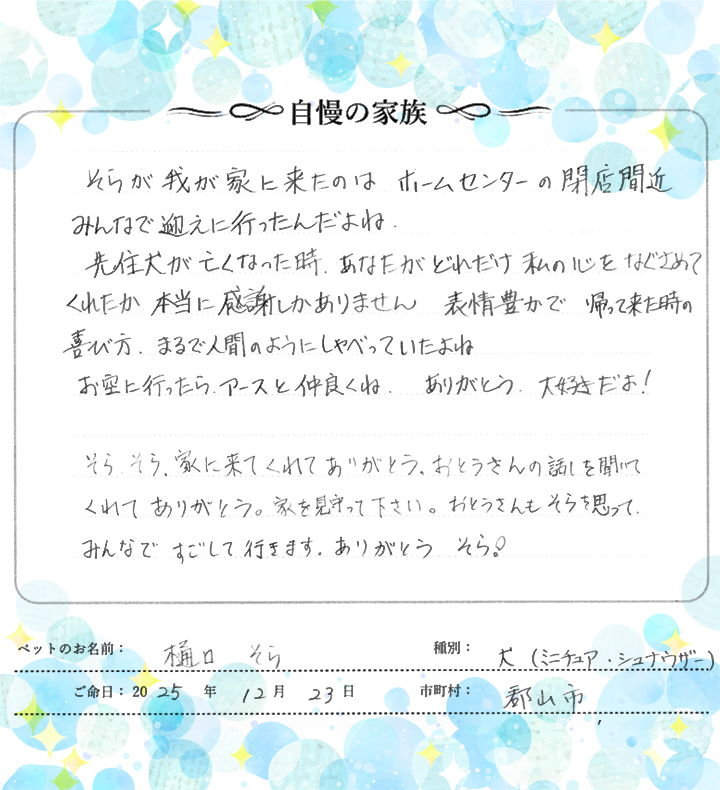 自慢の家族
そらが我が家に来たのは ホームセンターの閉店間近
みんなで迎えに行ったんだよね.
先住犬が亡くなった時. あなたがどれだけ私の心をなぐさめて
くれたか 本当に感謝しかありません 表情豊かで 帰って来た時の
喜び方. まるで人間のようにしゃべっていたよね
お空に行ったら. アースと仲良くね. ありがとう. 大好きだよ!
そら そら. 家に来てくれてありがとう. おとうさんの話しを聞いて
くれてありがとう。家を見守って下さい。おとうさんもそらを思って.
みんなですごして行きます. ありがとう そら!
ペットのお名前: 樋口 そら 種別: 犬 (ミニチュア・シュナウザー)
ご命日: 2025 年 12月 23日 市町村: 郡山市